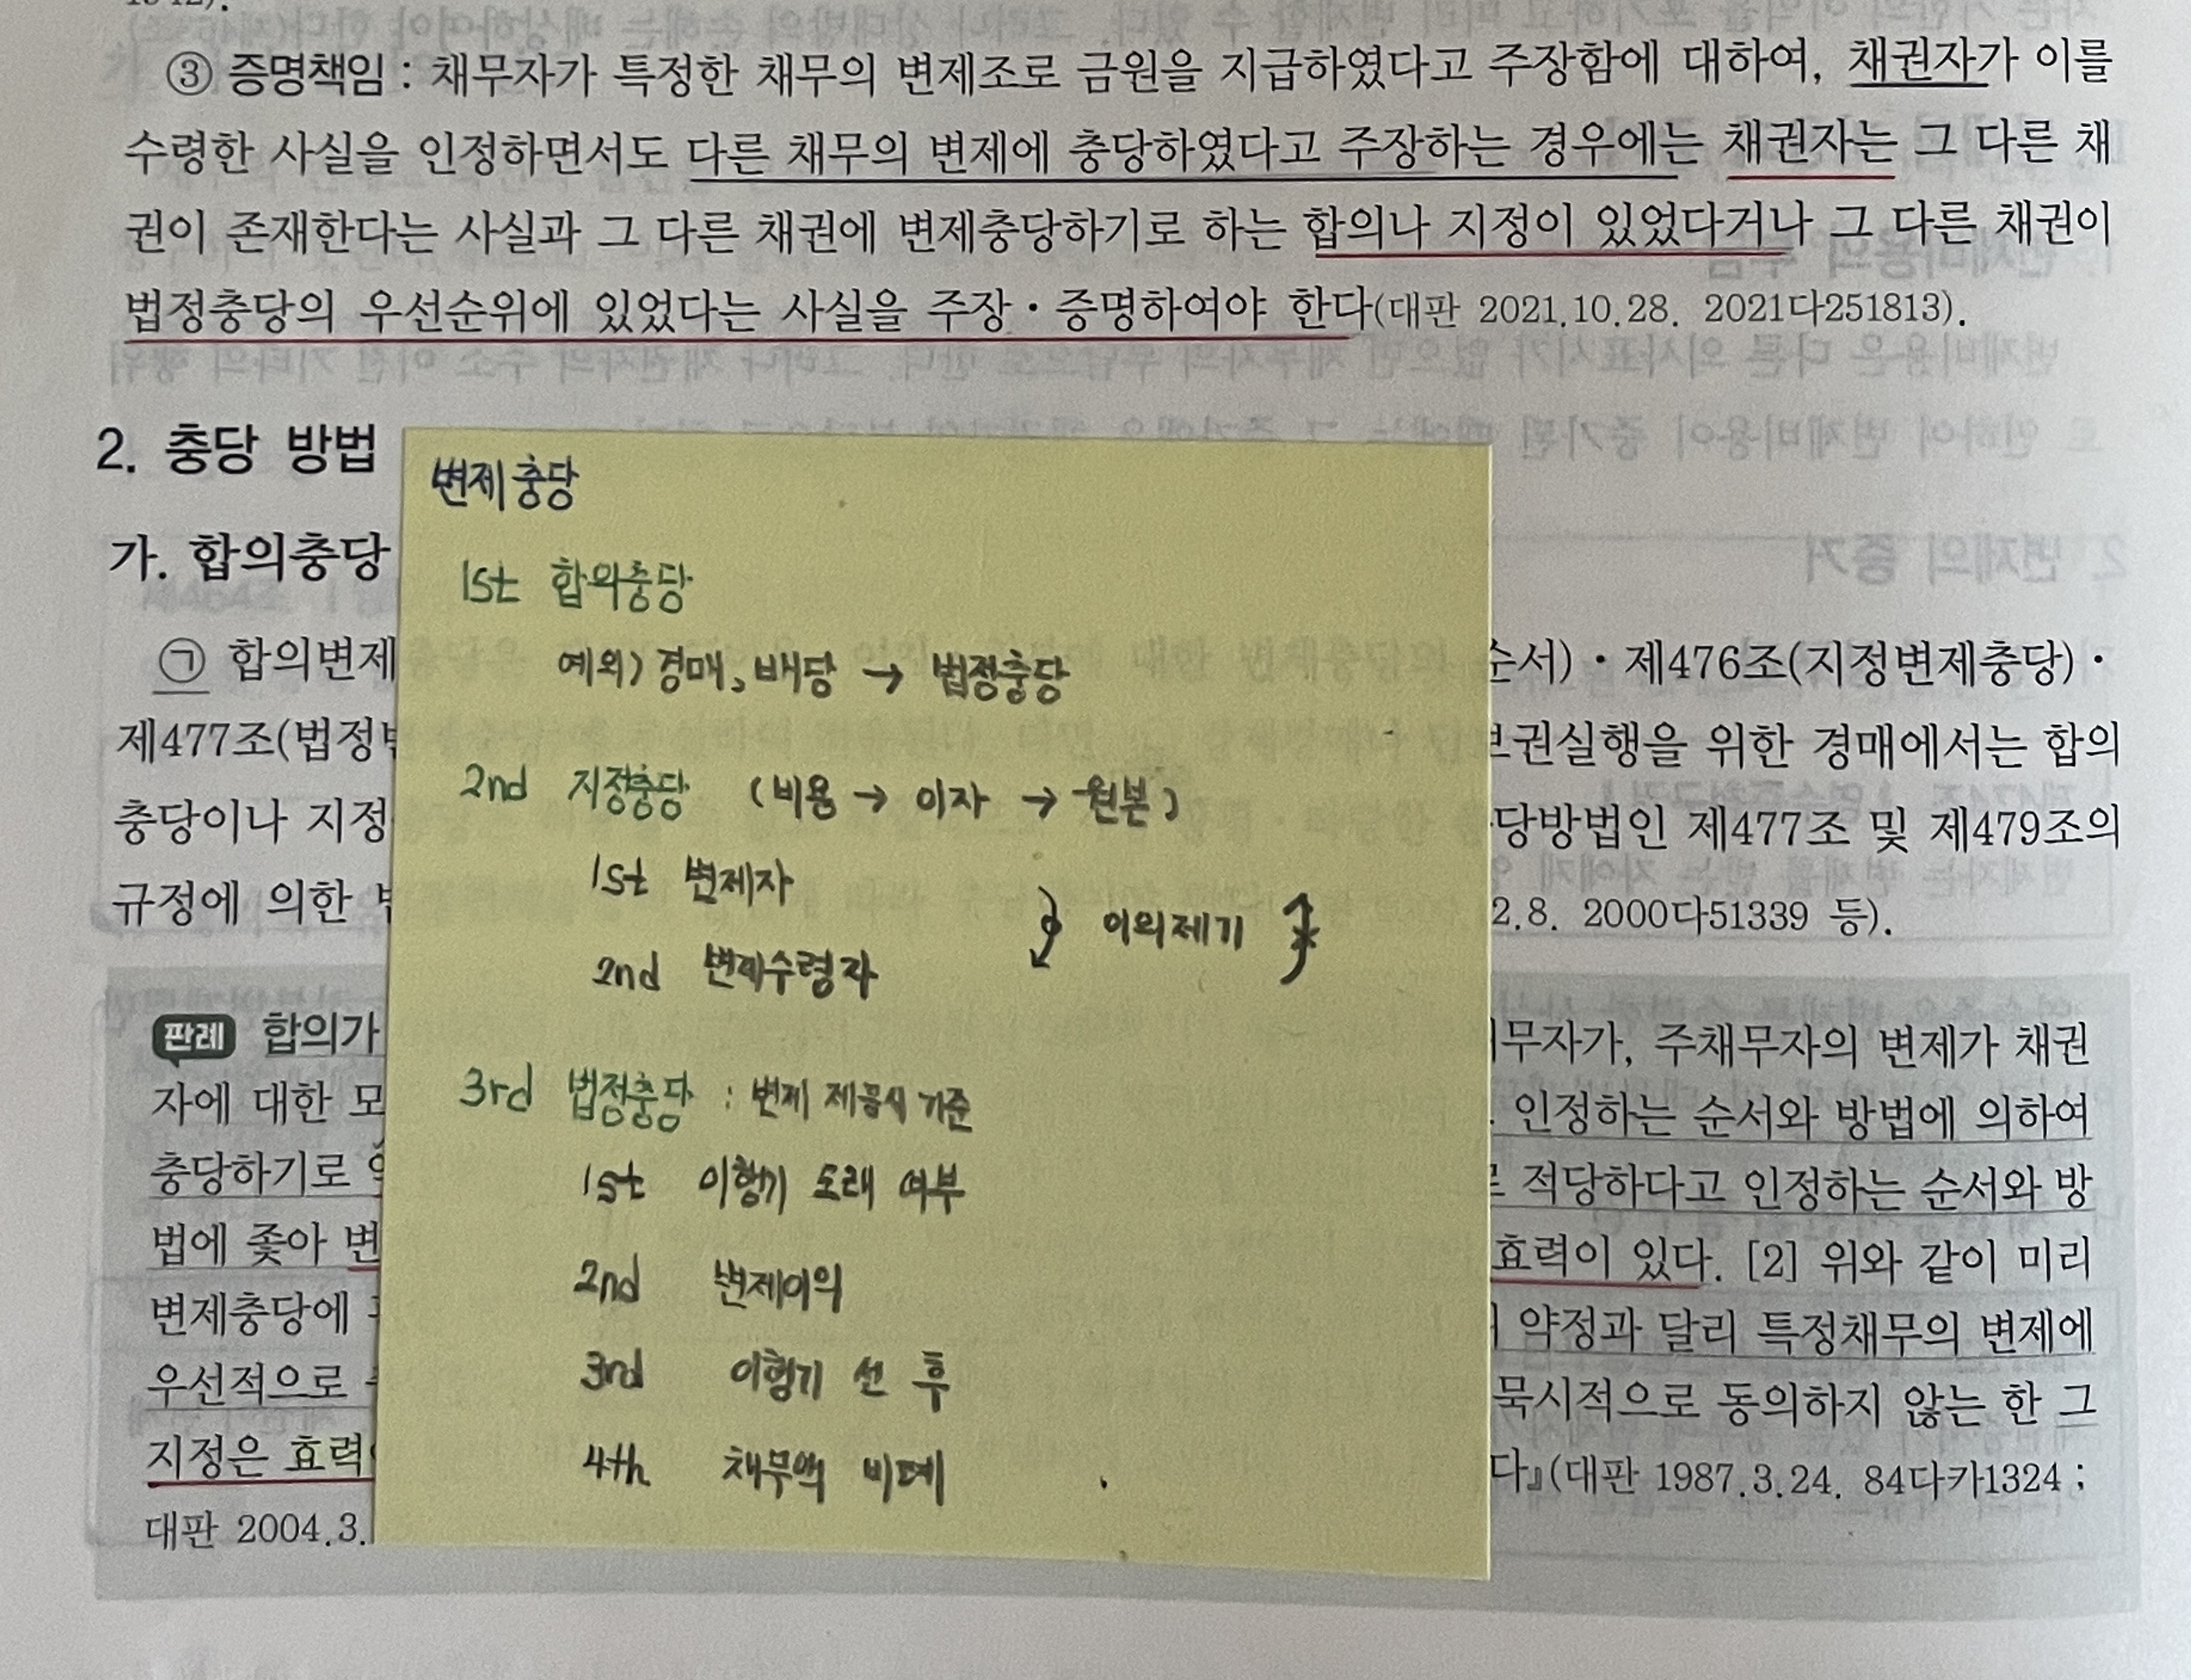 ③ 증명책임 : 채무자가 특정한 채무의 변제조로 금원을 지급하였다고 주장함에 대하여, 채권자가 이를
수령한 사실을 인정하면서도 다른 채무의 변제에 충당하였다고 주장하는 경우에는 채권자는 그 다른 채
권이 존재한다는 사실과 그 다른 채권에 변제충당하기로 하는 합의나 지정이 있었다거나 그 다른 채권이
법정충당의 우선순위에 있었다는 사실을 주장·증명하여야 한다(대판 2021.10.28. 2021다251813).
2. 충당 방법
가. 합의충당
㉠ 합의변제
순서)·제476조(지정변제충당)·
제477조(법정변
권실행을 위한 경매에서는 합의
충당이나 지정
당방법인 제477조 및 제479조의
규정에 의한
2.8. 2000다51339 등).
판례 합의가
무자가, 주채무자의 변제가 채권
자에 대한 모
인정하는 순서와 방법에 의하여
충당하기로
적당하다고 인정하는 순서와 방
법에 좇아 변
효력이 있다. [2] 위와 같이 미리
변제충당에
약정과 달리 특정채무의 변제에
우선적으로
묵시적으로 동의하지 않는 한 그
지정은 효력
다』(대판 1987.3.24. 84다카1324 ;
대판 2004.3.
변제충당
1st 합의충당
예외) 경매, 배당 → 법정충당
2nd 지정충당 (비용 → 이자 → 원본)
1st 변제자
이의제기
2nd 변제수령자
3rd 법정충당 : 변제 제공시 기준
1st 이행기 도래 여부
2nd 변제이익
3rd 이행기 선 후
4th 채무액 비례